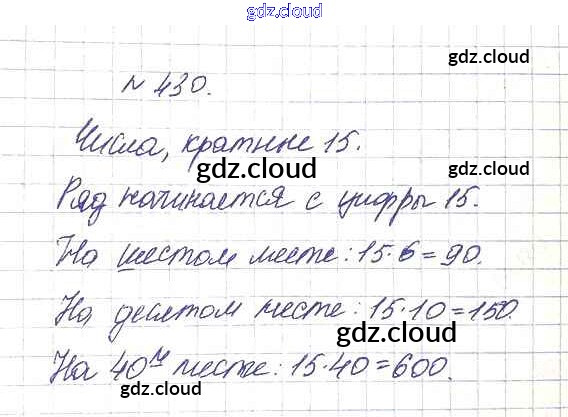 gdz.cloud
gdz.cloud
gdz.cloud
N 430.
Числа, кратные 15.
gdz.cloud
gdz.cloud
Ряд начинается с цифры 15.
На шестом месте: 15·6=90.
На десятом месте: 15·10=150.
gdz.cloud
На 40м месте: 15·40=600.
gdz.cloud